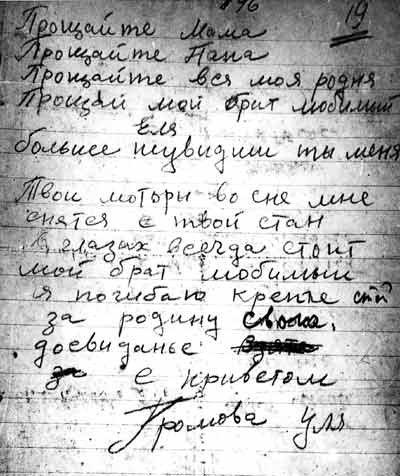 96
19
Прощайте Мама
Прощайте Папа
Прощайте вся моя родня
Прощай мой брат любимый
Еля
больше неувидиш ты меня
Твои моторы во сне мне
снятся Є твой стан
в глазах всегда стоит
мой брат любимый
я погибаю крепче стой
за родину свою.
досвиданье
за
С приветом
Громова Уля